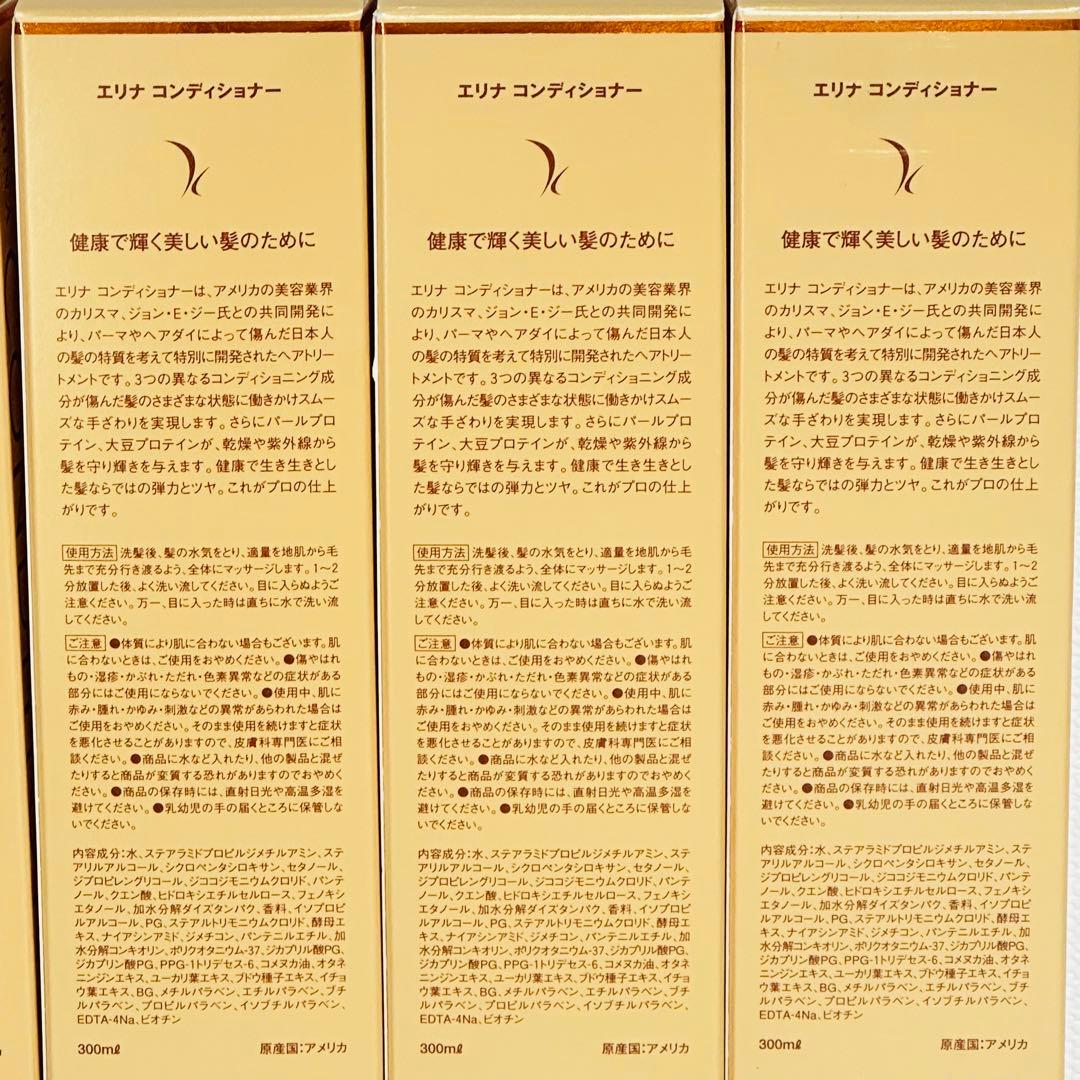 エリナ コンディショナー
健康で輝く美しい髪のために
エリナ コンディショナーは、アメリカの美容業界
のカリスマ、ジョン・E・ジー氏との共同開発に
より、パーマやヘアダイによって傷んだ日本人
の髪の特質を考えて特別に開発されたヘアトリー
トメントです。3つの異なるコンディショニング成
分が傷んだ髪のさまざまな状態に働きかけスムー
ズな手ざわりを実現します。さらにパールプロ
テイン、大豆プロテインが、乾燥や紫外線から
髪を守り輝きを与えます。健康で生き生きとし
た髪ならではの弾力とツヤ。これがプロの仕上
がりです。
使用方法 洗髪後、髪の水気をとり、適量を地肌から毛
先まで充分行き渡るよう、全体にマッサージします。1〜2
分放置した後、よく洗い流してください。目に入らぬようご
注意ください。万一、目に入った時は直ちに水で洗い流
してください。
ご注意 ●体質により肌に合わない場合もございます。肌
に合わないときは、ご使用をおやめください。●傷やはれ
もの・湿疹・かぶれ・ただれ・色素異常などの症状がある
部分にはご使用にならないでください。●使用中、肌に
赤み・腫れ・かゆみ・刺激などの異常があらわれた場合は
ご使用をおやめください。そのまま使用を続けますと症状
を悪化させることがありますので、皮膚科専門医にご相
談ください。●商品に水など入れたり、他の製品と混ぜ
たりすると商品が変質する恐れがありますのでおやめく
ださい。●商品の保存時には、直射日光や高温多湿を
避けてください。●乳幼児の手の届くところに保管しな
いでください。
内容成分:水、ステアラミドプロピルジメチルアミン、ステ
アリルアルコール、シクロペンタシロキサン、セタノール、
ジプロピレングリコール、ジココジモニウムクロリド、パンテ
ノール、クエン酸、ヒドロキシエチルセルロース、フェノキシ
エタノール、加水分解ダイズタンパク、香料、イソプロピ
ルアルコール、PG、ステアルトリモニウムクロリド、酵母エ
キス、ナイアシンアミド、ジメチコン、パンテニルエチル、加
水分解コンキオリン、ポリクオタニウム-37、ジカプリル酸PG、
ジカプリン酸PG、PPG-1トリデセス-6、コメヌカ油、オタネ
ニンジンエキス、ユーカリ葉エキス、ブドウ種子エキス、イチョ
ウ葉エキス、BG、メチルパラベン、エチルパラベン、ブチ
ルパラベン、プロピルパラベン、イソブチルパラベン、
EDTA-4Na、ビオチン
300mℓ 原産国:アメリカ
エリナ コンディショナー
健康で輝く美しい髪のために
エリナ コンディショナーは、アメリカの美容業界
のカリスマ、ジョン・E・ジー氏との共同開発に
より、パーマやヘアダイによって傷んだ日本人
の髪の特質を考えて特別に開発されたヘアトリー
トメントです。3つの異なるコンディショニング成
分が傷んだ髪のさまざまな状態に働きかけスムー
ズな手ざわりを実現します。さらにパールプロ
テイン、大豆プロテインが、乾燥や紫外線から
髪を守り輝きを与えます。健康で生き生きとし
た髪ならではの弾力とツヤ。これがプロの仕上
がりです。
使用方法 洗髪後、髪の水気をとり、適量を地肌から毛
先まで充分行き渡るよう、全体にマッサージします。1〜2
分放置した後、よく洗い流してください。目に入らぬようご
注意ください。万一、目に入った時は直ちに水で洗い流
してください。
ご注意 ●体質により肌に合わない場合もございます。肌
に合わないときは、ご使用をおやめください。●傷やはれ
もの・湿疹・かぶれ・ただれ・色素異常などの症状がある
部分にはご使用にならないでください。●使用中、肌に
赤み・腫れ・かゆみ・刺激などの異常があらわれた場合は
ご使用をおやめください。そのまま使用を続けますと症状
を悪化させることがありますので、皮膚科専門医にご相
談ください。●商品に水など入れたり、他の製品と混ぜ
たりすると商品が変質する恐れがありますのでおやめく
ださい。●商品の保存時には、直射日光や高温多湿を
避けてください。●乳幼児の手の届くところに保管しな
いでください。
内容成分:水、ステアラミドプロピルジメチルアミン、ステ
アリルアルコール、シクロペンタシロキサン、セタノール、
ジプロピレングリコール、ジココジモニウムクロリド、パンテ
ノール、クエン酸、ヒドロキシエチルセルロース、フェノキシ
エタノール、加水分解ダイズタンパク、香料、イソプロピ
ルアルコール、PG、ステアルトリモニウムクロリド、酵母エ
キス、ナイアシンアミド、ジメチコン、パンテニルエチル、加
水分解コンキオリン、ポリクオタニウム-37、ジカプリル酸PG、
ジカプリン酸PG、PPG-1トリデセス-6、コメヌカ油、オタネ
ニンジンエキス、ユーカリ葉エキス、ブドウ種子エキス、イチョ
ウ葉エキス、BG、メチルパラベン、エチルパラベン、ブチ
ルパラベン、プロピルパラベン、イソブチルパラベン、
EDTA-4Na、ビオチン
300mℓ 原産国:アメリカ
エリナ コンディショナー
健康で輝く美しい髪のために
エリナ コンディショナーは、アメリカの美容業界
のカリスマ、ジョン・E・ジー氏との共同開発に
より、パーマやヘアダイによって傷んだ日本人
の髪の特質を考えて特別に開発されたヘアトリー
トメントです。3つの異なるコンディショニング成
分が傷んだ髪のさまざまな状態に働きかけスムー
ズな手ざわりを実現します。さらにパールプロ
テイン、大豆プロテインが、乾燥や紫外線から
髪を守り輝きを与えます。健康で生き生きとし
た髪ならではの弾力とツヤ。これがプロの仕上
がりです。
使用方法 洗髪後、髪の水気をとり、適量を地肌から毛
先まで充分行き渡るよう、全体にマッサージします。1〜2
分放置した後、よく洗い流してください。目に入らぬようご
注意ください。万一、目に入った時は直ちに水で洗い流
してください。
ご注意 ●体質により肌に合わない場合もございます。肌
に合わないときは、ご使用をおやめください。●傷やはれ
もの・湿疹・かぶれ・ただれ・色素異常などの症状がある
部分にはご使用にならないでください。●使用中、肌に
赤み・腫れ・かゆみ・刺激などの異常があらわれた場合は
ご使用をおやめください。そのまま使用を続けますと症状
を悪化させることがありますので、皮膚科専門医にご相
談ください。●商品に水など入れたり、他の製品と混ぜ
たりすると商品が変質する恐れがありますのでおやめく
ださい。●商品の保存時には、直射日光や高温多湿を
避けてください。●乳幼児の手の届くところに保管しな
いでください。
内容成分:水、ステアラミドプロピルジメチルアミン、ステ
アリルアルコール、シクロペンタシロキサン、セタノール、
ジプロピレングリコール、ジココジモニウムクロリド、パンテ
ノール、クエン酸、ヒドロキシエチルセルロース、フェノキシ
エタノール、加水分解ダイズタンパク、香料、イソプロピ
ルアルコール、PG、ステアルトリモニウムクロリド、酵母エ
キス、ナイアシンアミド、ジメチコン、パンテニルエチル、加
水分解コンキオリン、ポリクオタニウム-37、ジカプリル酸PG、
ジカプリン酸PG、PPG-1トリデセス-6、コメヌカ油、オタネ
ニンジンエキス、ユーカリ葉エキス、ブドウ種子エキス、イチョ
ウ葉エキス、BG、メチルパラベン、エチルパラベン、ブチ
ルパラベン、プロピルパラベン、イソブチルパラベン、
EDTA-4Na、ビオチン
300mℓ 原産国:アメリカ